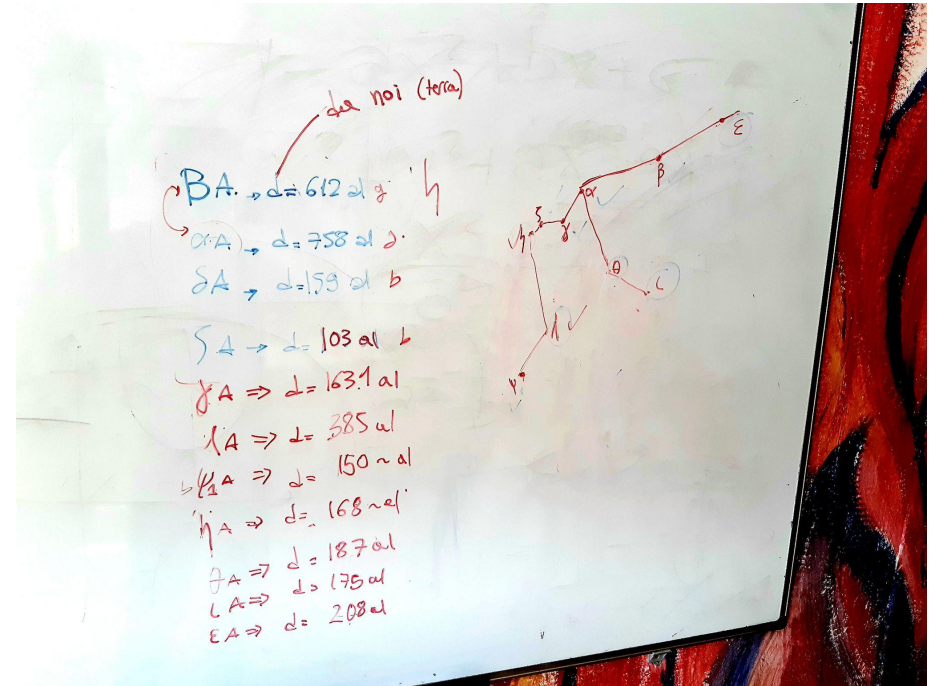 da noi (terra)
BA. → d= 612 al g h
αA → d= 758 al g.
δA → d=159 al b
ζA → d= 103 al b
γA ⇒ d= 163.1 al
λA ⇒ d= 385 al
ψ1A ⇒ d= 150 ~ al
ηA ⇒ d= 168 ~ al
θA ⇒ d= 187 al
ιA ⇒ d= 175 al
εA ⇒ d= 208 al
ε
β
α
ζ
γ
η
θ
ι
λ